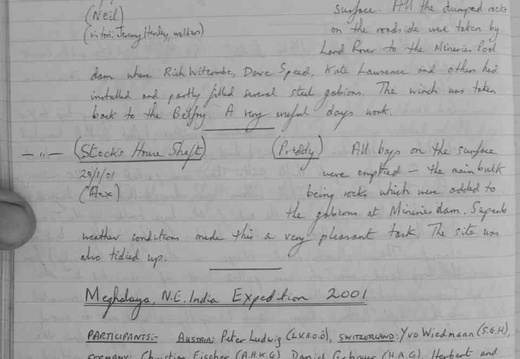 surface. All the dumped rocks
(Neil)
on the roadside were taken by
(visitors: Jeremy Henley, walkers)
Land Rover to the Mineries Pool
dam where Rich Witcombe, Dave Speed, Kate Lawrence and others had
installed and partly filled several steel gabions. The winch was taken
back to the Belfry. A very useful days work.
—"— (Stock's House Shaft) (Priddy) All bags on the surface
29/1/01 were emptied – the main bulk
(Alex) being rocks which were added to
the gabions at Mineries dam. Superb
weather conditions made this a very pleasant task. The site was
also tidied up.
Meghalaya, N.E. India Expedition 2001
PARTICIPANTS:- AUSTRIA: Peter Ludwig (L.V.H.O.Ö), SWITZERLAND: Yvo Wiedmann (S.G.H),
GERMANY: Christian Fischer (A.H.K.G) Daniel Gebauer (H.A.G), Herbert and